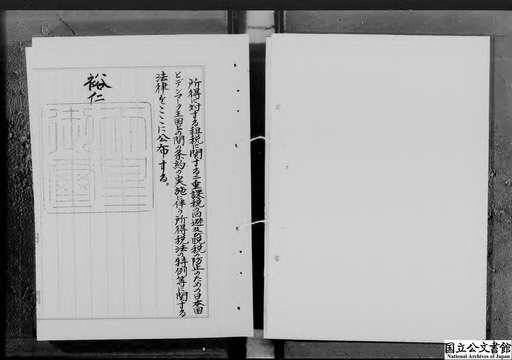 所得に対する租税に関する二重課税の回避及び脱税の防止のための日本国
とデンマーク王国との間の条約の実施に伴う所得税法の特例等に関する
法律をここに公布する。
裕仁
天皇御璽
国立公文書館
National Archives of Japan